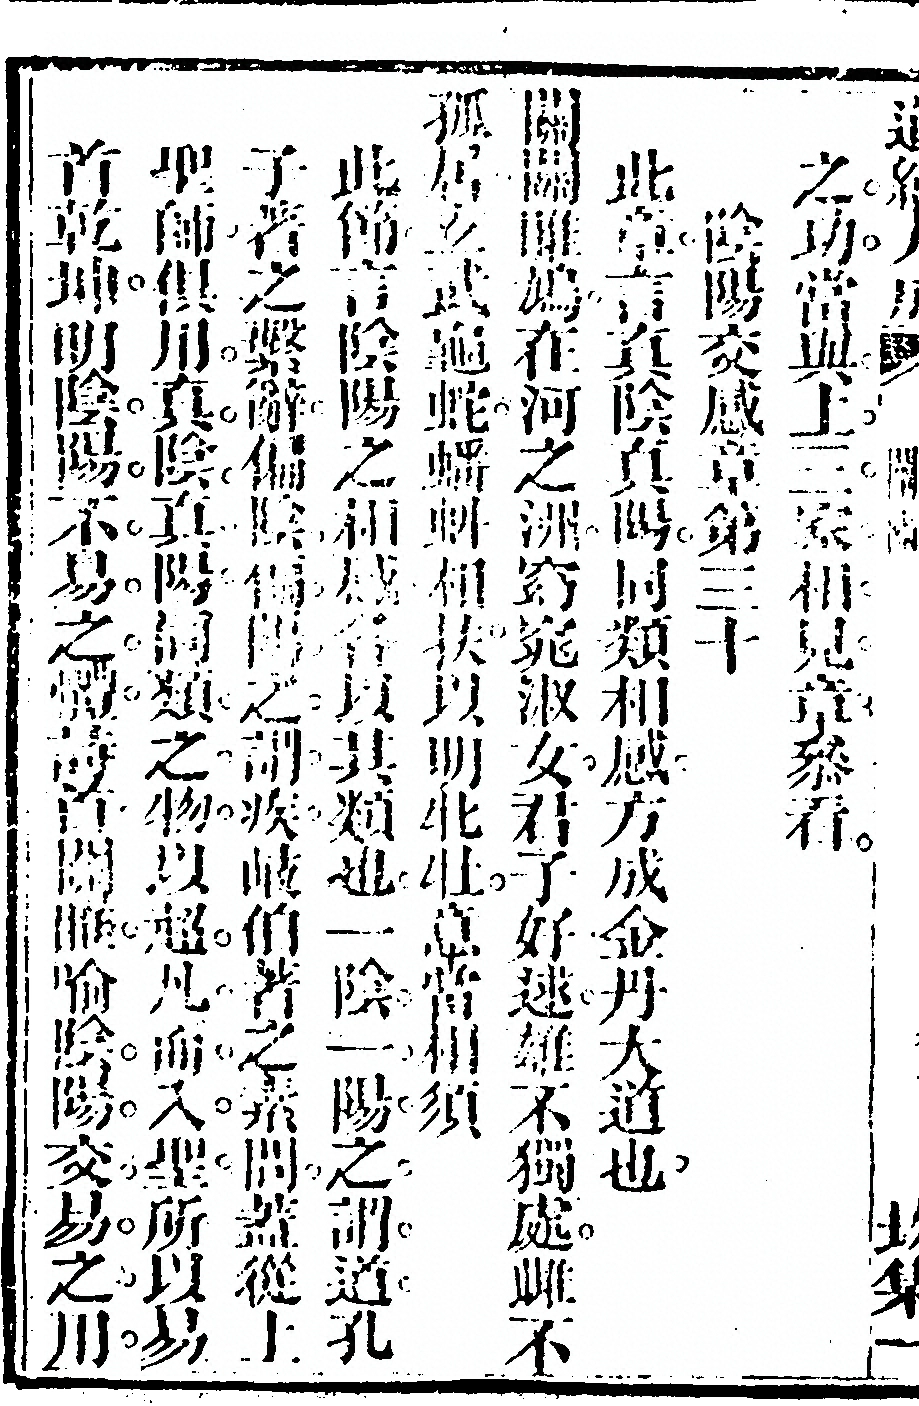 之功當與上三家相見章參看
陰陽交感章第三十
此章言真陰真陽同類相感方成金丹大道也
關關雎鳩在河之洲窈窕淑女君子好逑雄不獨處雌不
孤居玄武龜蛇蟠虯相扶以明牝牡意當相須
此節言陰陽之相感各以其類也一陰一陽之謂道孔
子著之繫辭偏陰偏陽之謂疾岐伯著之素問蓋從上
聖師俱用真陰真陽同類之物以超凡而入聖所以易
首乾坤明陰陽不易之體詩首關雎喻陰陽交易之用
坎集一